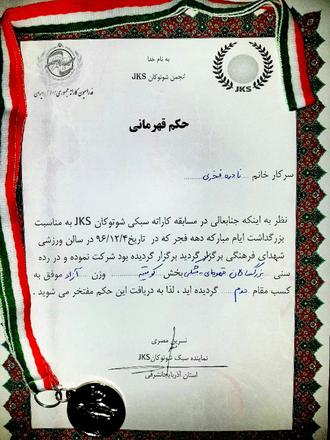 به نام خدا
انجمن شوتوکان JKS
فدراسیون کاراته جمهوری اسلامی ایران
JKS
حکم قهرمانی
سرکار خانم نادره فخری
نظر به اینکه جنابعالی در مسابقه کاراته سبکی شوتوکان JKS به مناسبت
بزرگداشت ایام مبارکه دهه فجر که در تاریخ ۹۶/۱۲/۴ در سالن ورزشی
شهدای فرهنگی برگزار گردید برگزار گردیده بود شرکت نموده و در رده
سنی بزرگسالان بخش کومیته وزن آزاد موفق به
کسب مقام دوم گردیده اید ، لذا به دریافت این حکم مفتخر می شوید .
نسرین مصری
نماینده سبک شوتوکان JKS
استان آذربایجانشرقی